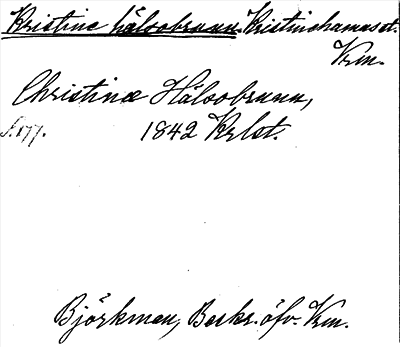 Kristine hälsobrunn. Kristinehamns st.
Vrm.
Christinæ Hälsobrunn,
S. 177. 1842 Krlst.
Björkman, Beskr. öfv. Vrm.